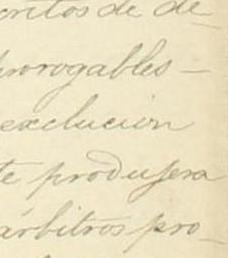 critos de de-
prorogables-
exclucion
te produjera
árbitros pro-